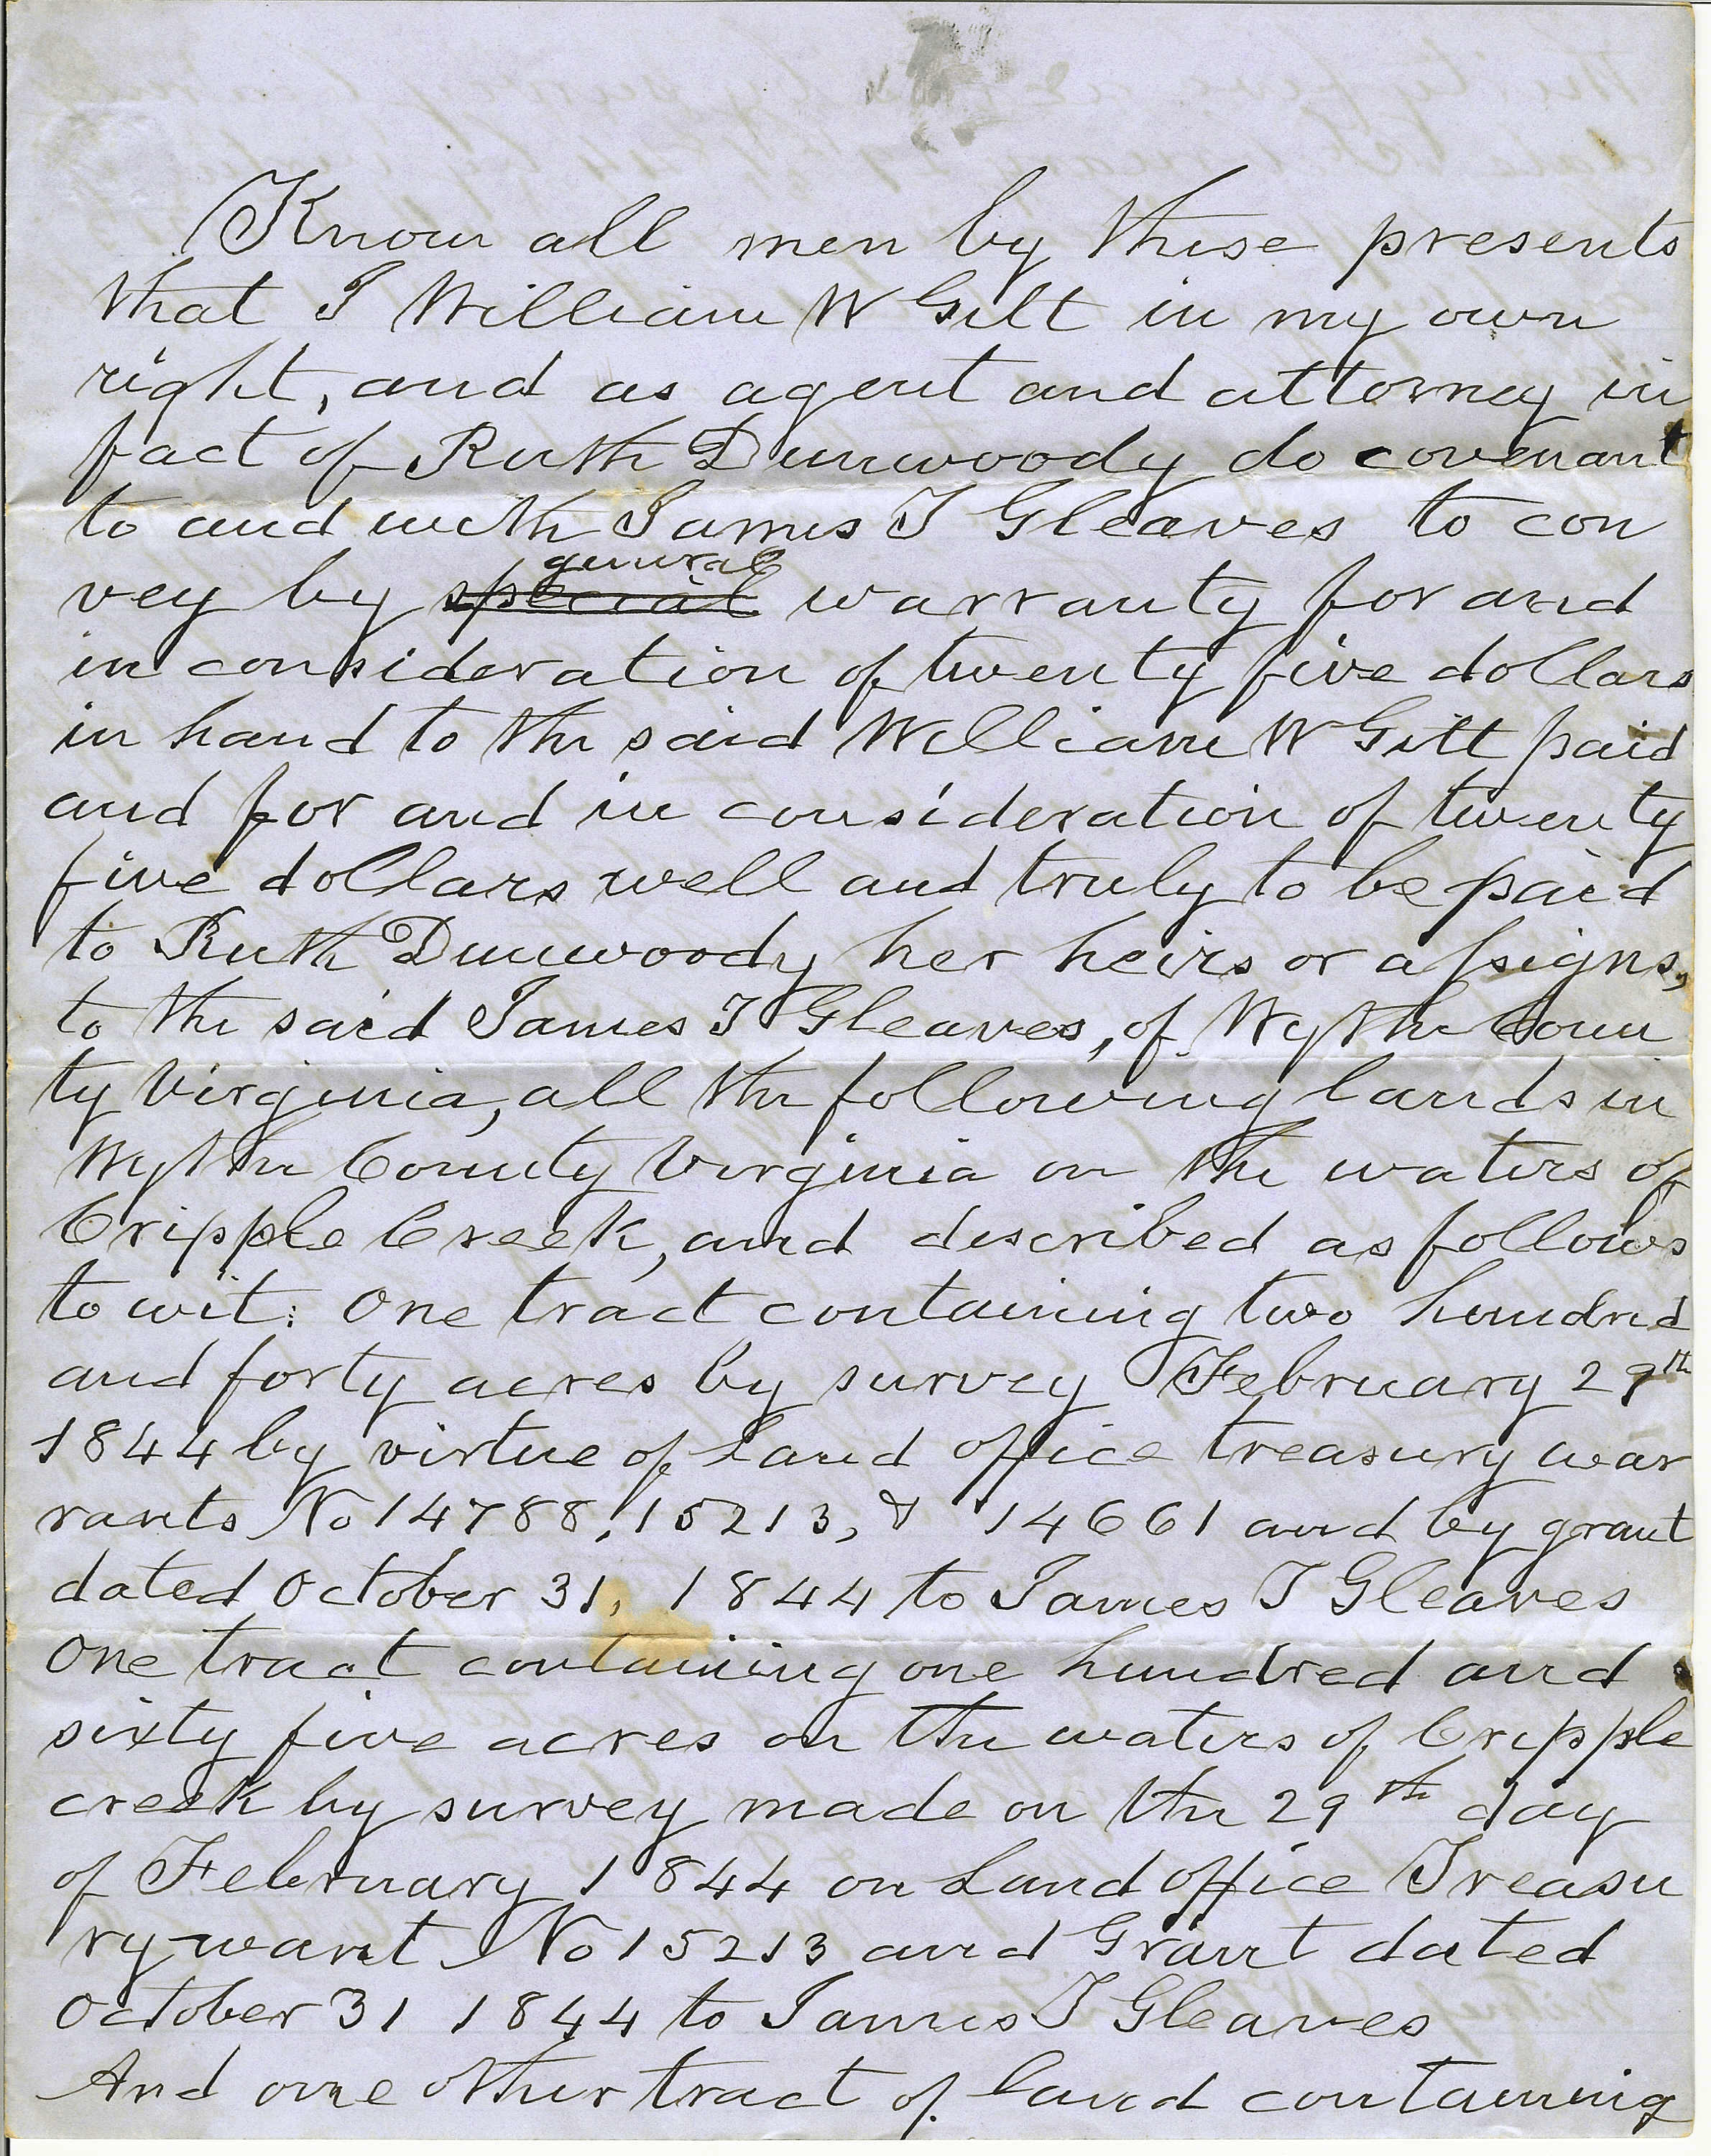 Know all men by these presents
that I William W Gitt in my own
right, and as agent and attorney in
fact of Ruth Dunwoody do covenant
to and with James T Gleaves to con
vey by special general warranty for and
in consideration of twenty five dollars
in hand to the said William W Gitt paid
and for and in consideration of twenty
five dollars well and truly to be paid
to Ruth Dunwoody her heirs or assigns,
to the said James T Gleaves, of Wythe Coun
ty Virginia, all the following lands in
Wythe County Virginia on the waters of
Cripple Creek, and described as follows
to wit: One tract containing two hundred
and forty acres by survey February 29th
1844 by virtue of Land office treasury war
rants No 14788, 15213, & 14661 and by grant
dated October 31, 1844 to James T Gleaves
One tract containing one hundred and
sixty five acres on the waters of Cripple
creek by survey made on the 29th day
of February 1844 on Land office Treasu
ry warnt No 15213 and Grant dated
October 31 1844 to James T Gleaves
And one other tract of land containing